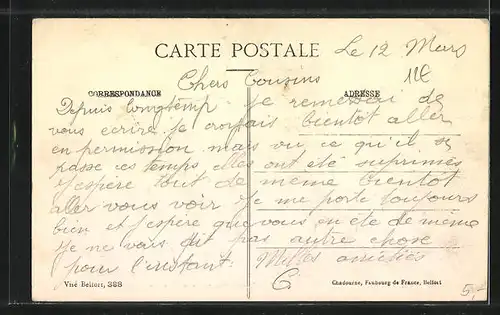 CARTE POSTALE
Le 12 Mars
Chers Cousins
CORRESPONDANCE
ADRESSE
Depuis longtemp je remettai de
vous ecrire je croyais bientôt aller
en permission mais vu ce qu'il se
passe ces temps elles ont été suprimés
j'espère tout de même bientôt
aller vous voir je me porte toujours
bien et j'espère que vous en ete de même
je ne vois dit pas autre chose
pour l'instant. Milles amitiés
C
Visé Belfort, 388
Chadouine, Faubourg de France, Belfort